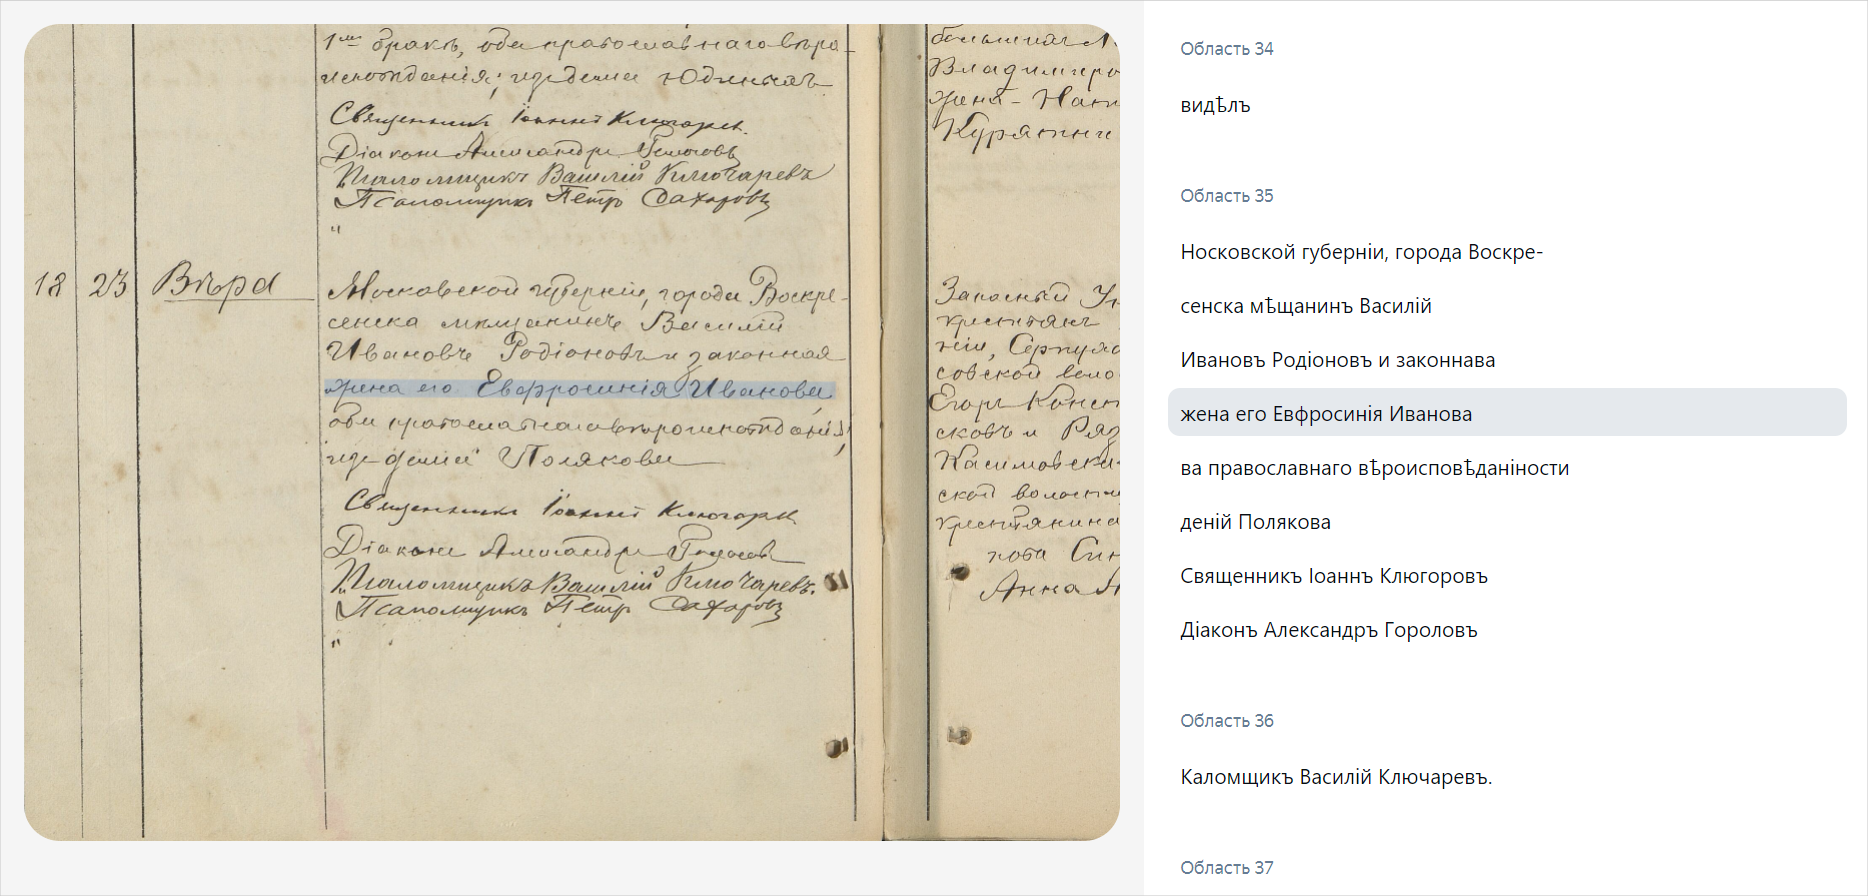 1го брака, оба православнаго вѣро-
исповѣданія; иждеми Юдиныхъ
Священникъ Іоаннъ Ключарев.
Діаконъ Александръ Голосовъ
Псаломщикъ Василій Ключаревъ
Псаломщикъ Петръ Сахаровъ
"
18 23 Вѣра
Московской губерніи, города Воскре-
сенска мѣщанинъ Василій
Ивановъ Родіоновъ и законная
жена его Евфросинія Иванова
оба православнаго вѣроисповѣданія;
Полякова
Священникъ Іоаннъ Ключарев
Діаконъ Александръ Голосовъ
Псаломщикъ Василій Ключаревъ.
Псаломщикъ Петръ Сахаровъ
"
Владимиро
жена - Ната
Курятни
Запасный Ун
крестьян
ніи, Серпухо
совской воло
Егоръ Конст
сковъ и Ряз
Касимовска
ской волости
крестьянина
Анна А
Область 34
видѣлъ
Область 35
Носковской губерніи, города Воскре-
сенска мѣщанинъ Василій
Ивановъ Родіоновъ и законнава
жена его Евфросинія Иванова
ва православнаго вѣроисповѣданіности
деній Полякова
Священникъ Іоаннъ Клюгоровъ
Діаконъ Александръ Гороловъ
Область 36
Каломщикъ Василій Ключаревъ.
Область 37